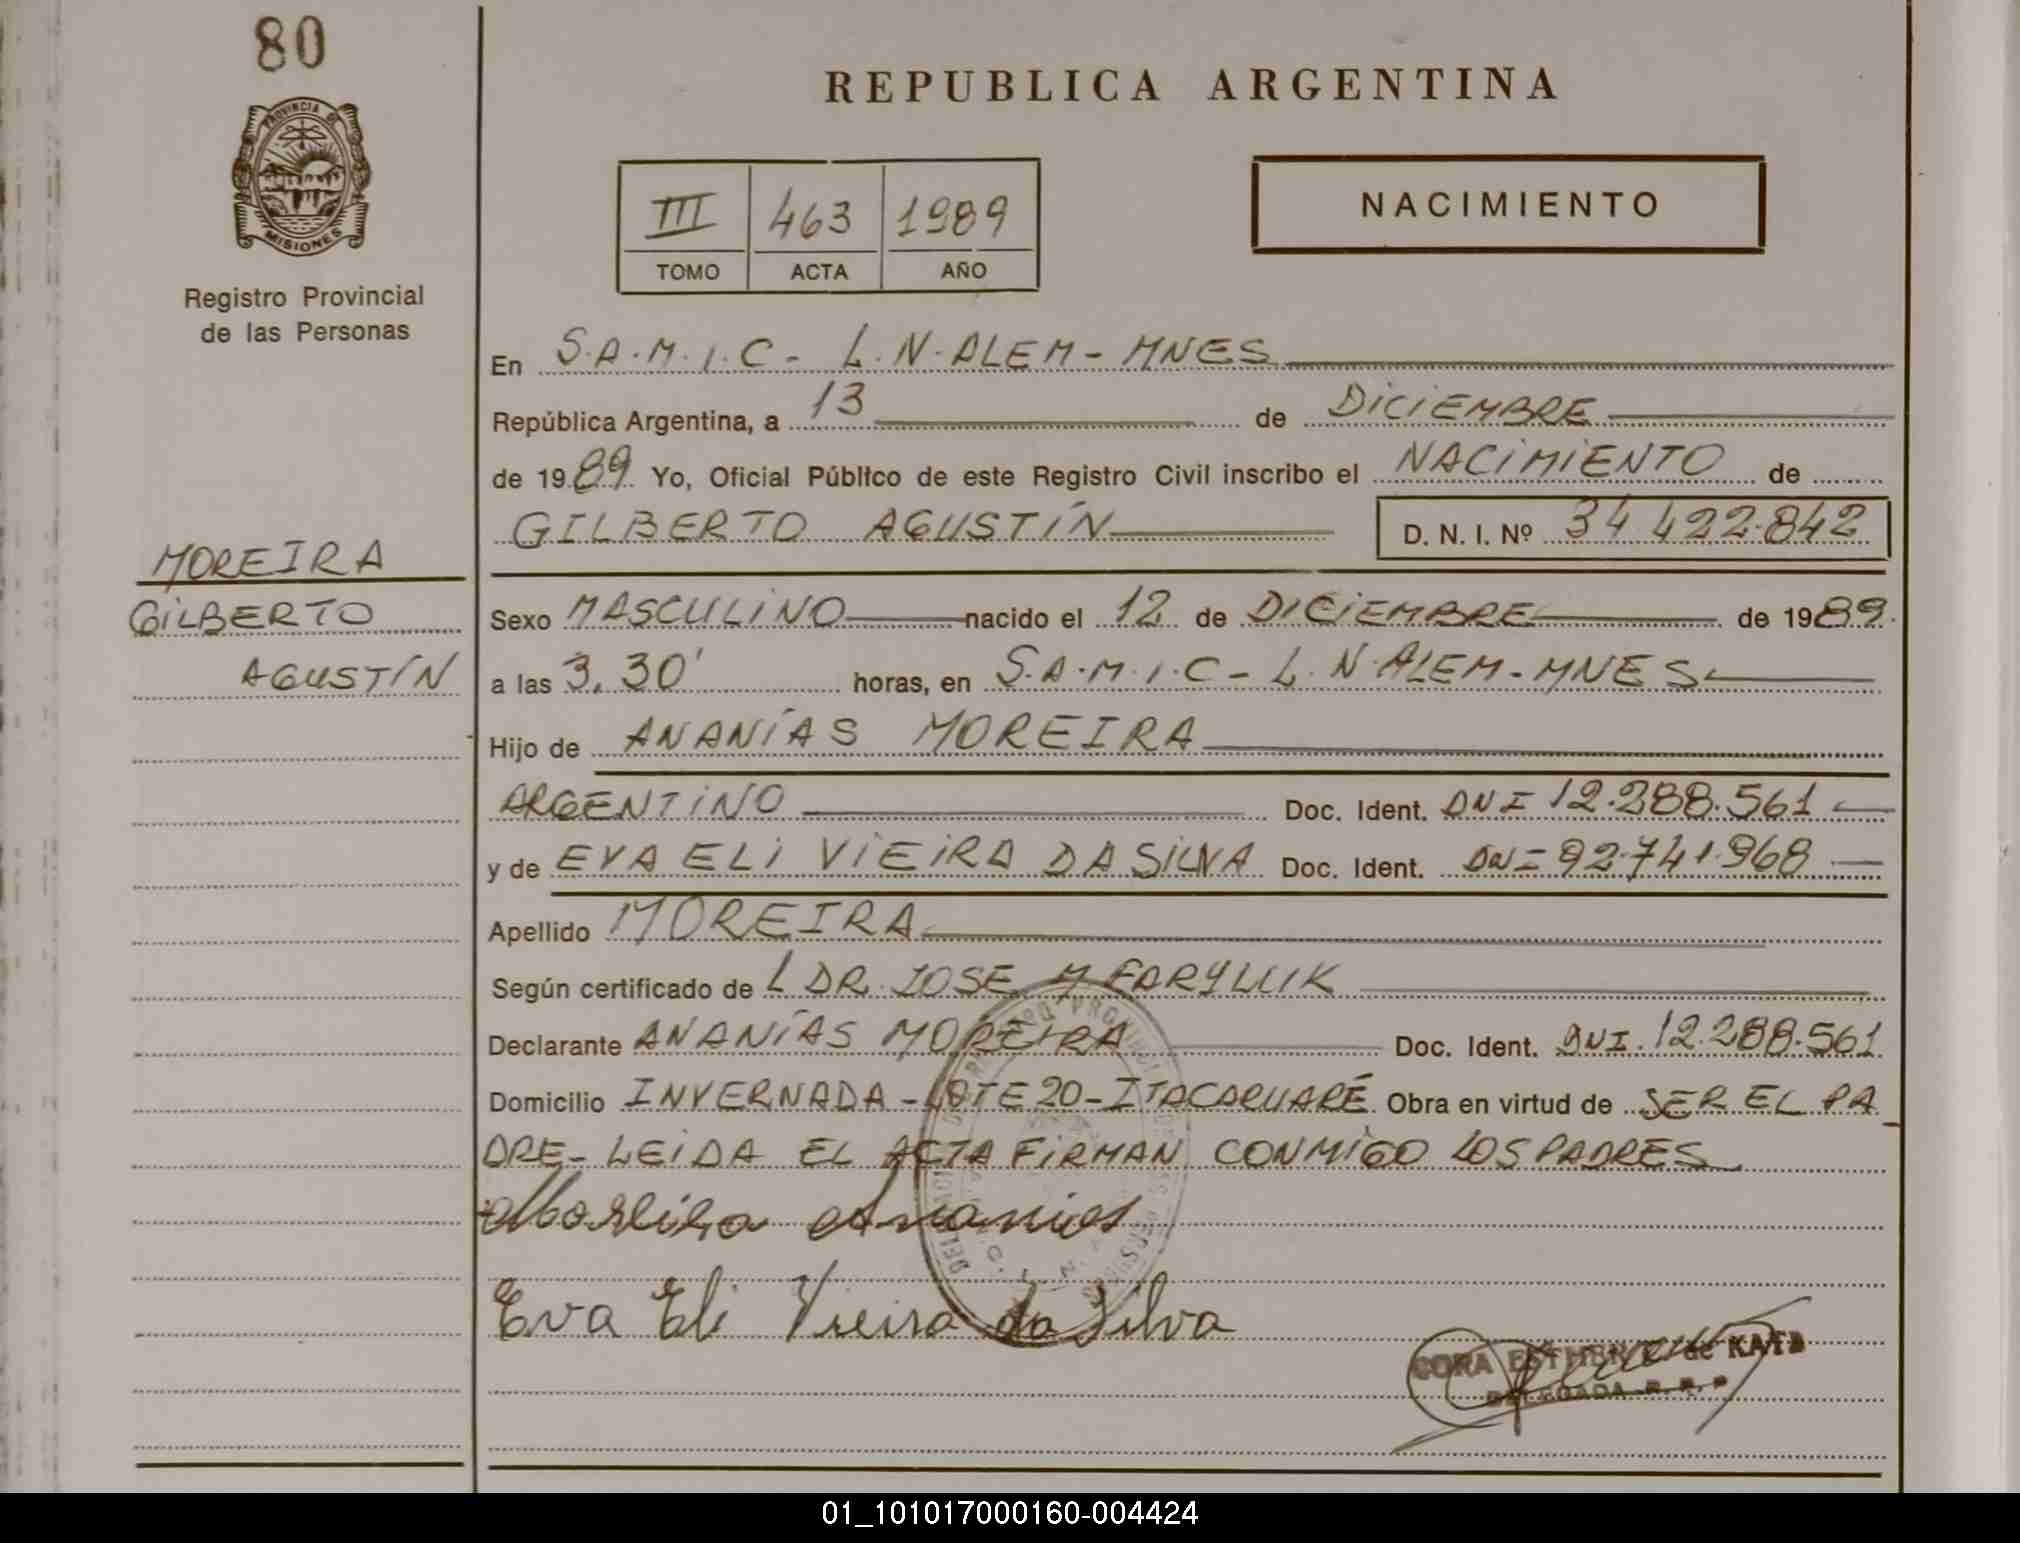 80
PROVINCIA DE
MISIONES
Registro Provincial
de las Personas
MOREIRA
GILBERTO
AGUSTÍN
REPUBLICA ARGENTINA
III 463 1989
TOMO ACTA AÑO
NACIMIENTO
En S.A.M.I.C - L.N.ALEM - MNES
República Argentina, a 13 de DICIEMBRE
de 1989 Yo, Oficial Público de este Registro Civil inscribo el NACIMIENTO de
GILBERTO AGUSTÍN D. N. I. Nº 34 422.842
Sexo MASCULINO nacido el 12 de DICIEMBRE de 1989.
a las 3,30' horas, en S.A.M.I.C - L.N.ALEM - MNES
Hijo de ANANÍAS MOREIRA
ARGENTINO Doc. Ident. DNI 12.288.561
y de EVA ELI VIEIRA DA SILVA Doc. Ident. DNI 92.741.968
Apellido MOREIRA
Según certificado de L DR. JOSE M FARYLUIK
Declarante ANANÍAS MOREIRA Doc. Ident. DNI. 12.288.561
Domicilio INVERNADA - LOTE 20 - ITACARUARÉ Obra en virtud de SER EL PA
DRE - LEIDA EL ACTA FIRMAN CONMIGO LOS PADRES
Moreira Ananias
Eva Eli Vieira da Silva
CORA ESTHER de
DELEGADA R. R. P
01_101017000160-004424